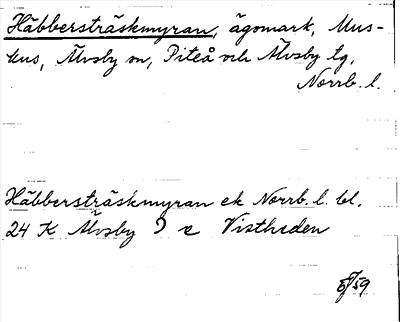 Häbbersträskmyran, ägomark, Mus-
kus, Älvsby sn, Piteå och Älvsby tg,
Norrb. l.
Häbbersträskmyran ek Norrb. l. bl.
24 K Älvsby 9 e Vistheden
/59